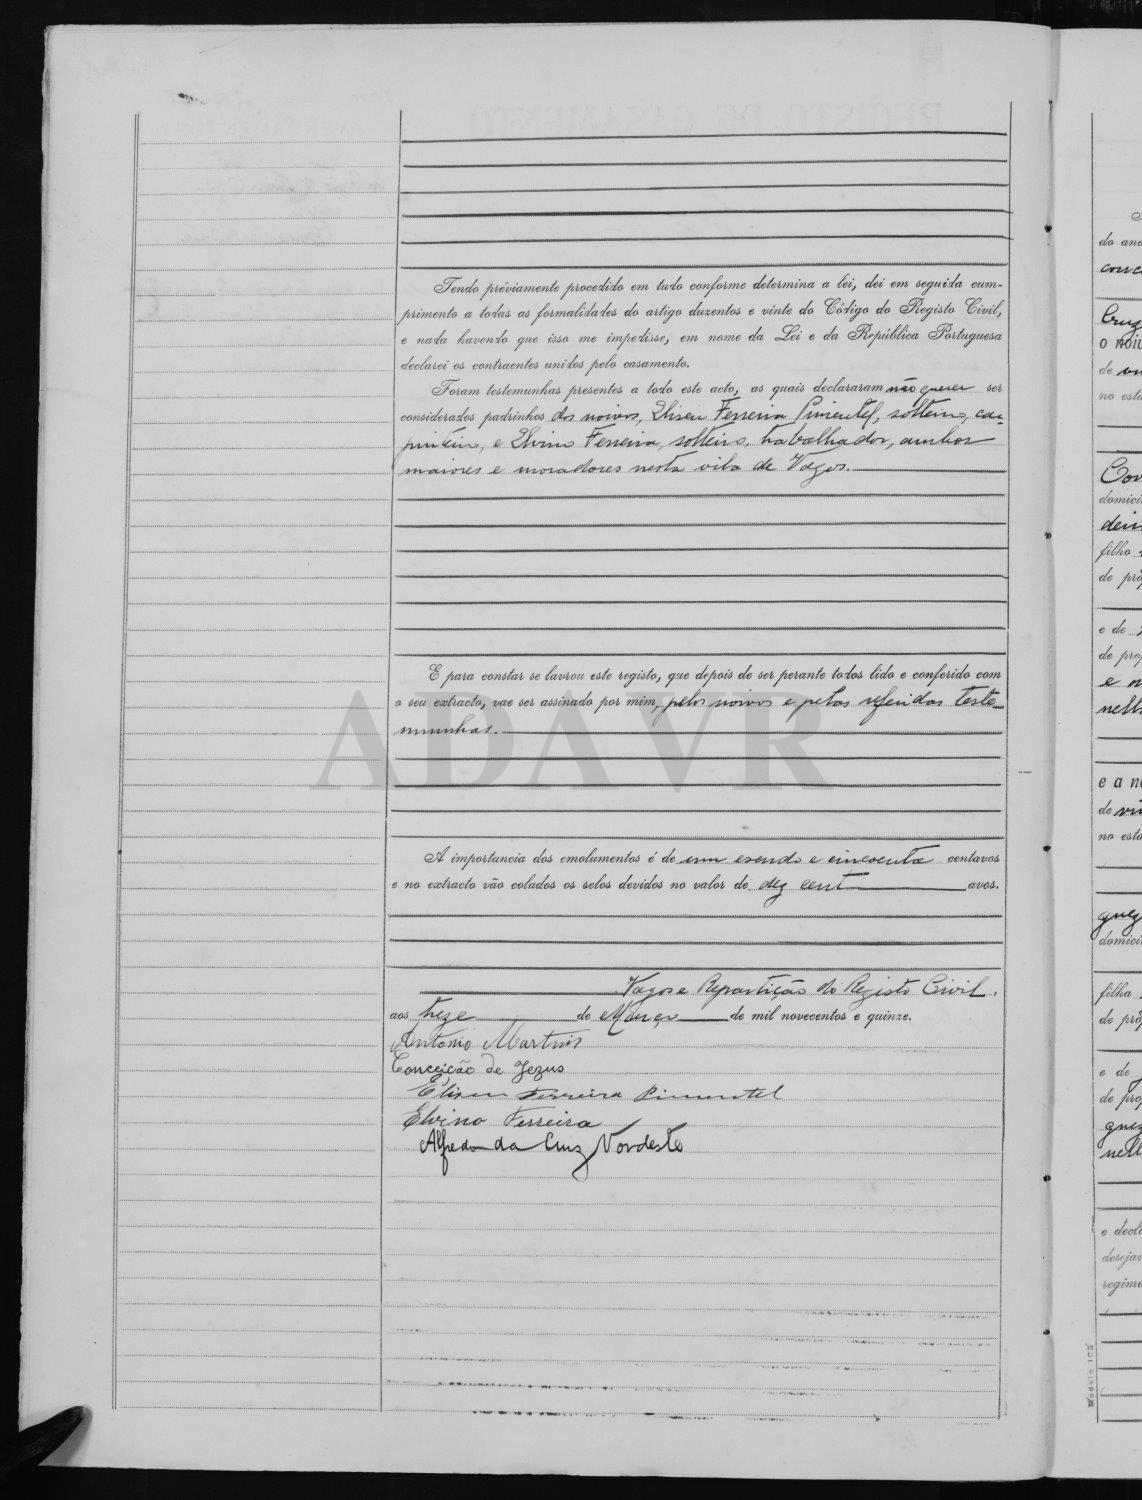 Tendo préviamente procedido em tudo conforme determina a lei, dei em seguida cum-
primento a todas as formalidades do artigo duzentos e vinte do Código do Registo Civil,
e nada havendo que isso me impedisse, em nome da Lei e da República Portuguesa
declarei os contraentes unidos pelo casamento.
Foram testemunhas presentes a todo este acto, as quais declararam não querer ser
considerados padrinhos dos noivos, Eliseu Ferreira Pimentel, solteiro, car-
pinteiro, e Elvino Ferreira, solteiro, trabalhador, ambos
maiores e moradores nesta vila de Vagos.
E para constar se lavrou este registo, que depois de ser perante todos lido e conferido com
o seu extracto, vae ser assinado por mim, pelos noivos e pelas referidas teste-
munhas.
ADAVR
A importancia dos emolumentos é de um escudo e cincoenta centavos
e no extracto vão colados os selos devidos no valor de dez cent avos.
Vagos e Repartição do Registo Civil,
aos treze de Março de mil novecentos e quinze.
Antonio Martins
Conceição de Jezus
Eliseu Ferreira Pimentel
Elvino Ferreira
Alfredo da Cruz Nordeste
do ano
Cruz
o noiv
de
no esta
domici
filho
de pro
e de
de pro
e
nell
e a no
de
no esta
guez
domici
filha
de pro
e de
de pro
guez
nell
e decl
desejar
regime
Modelo 103